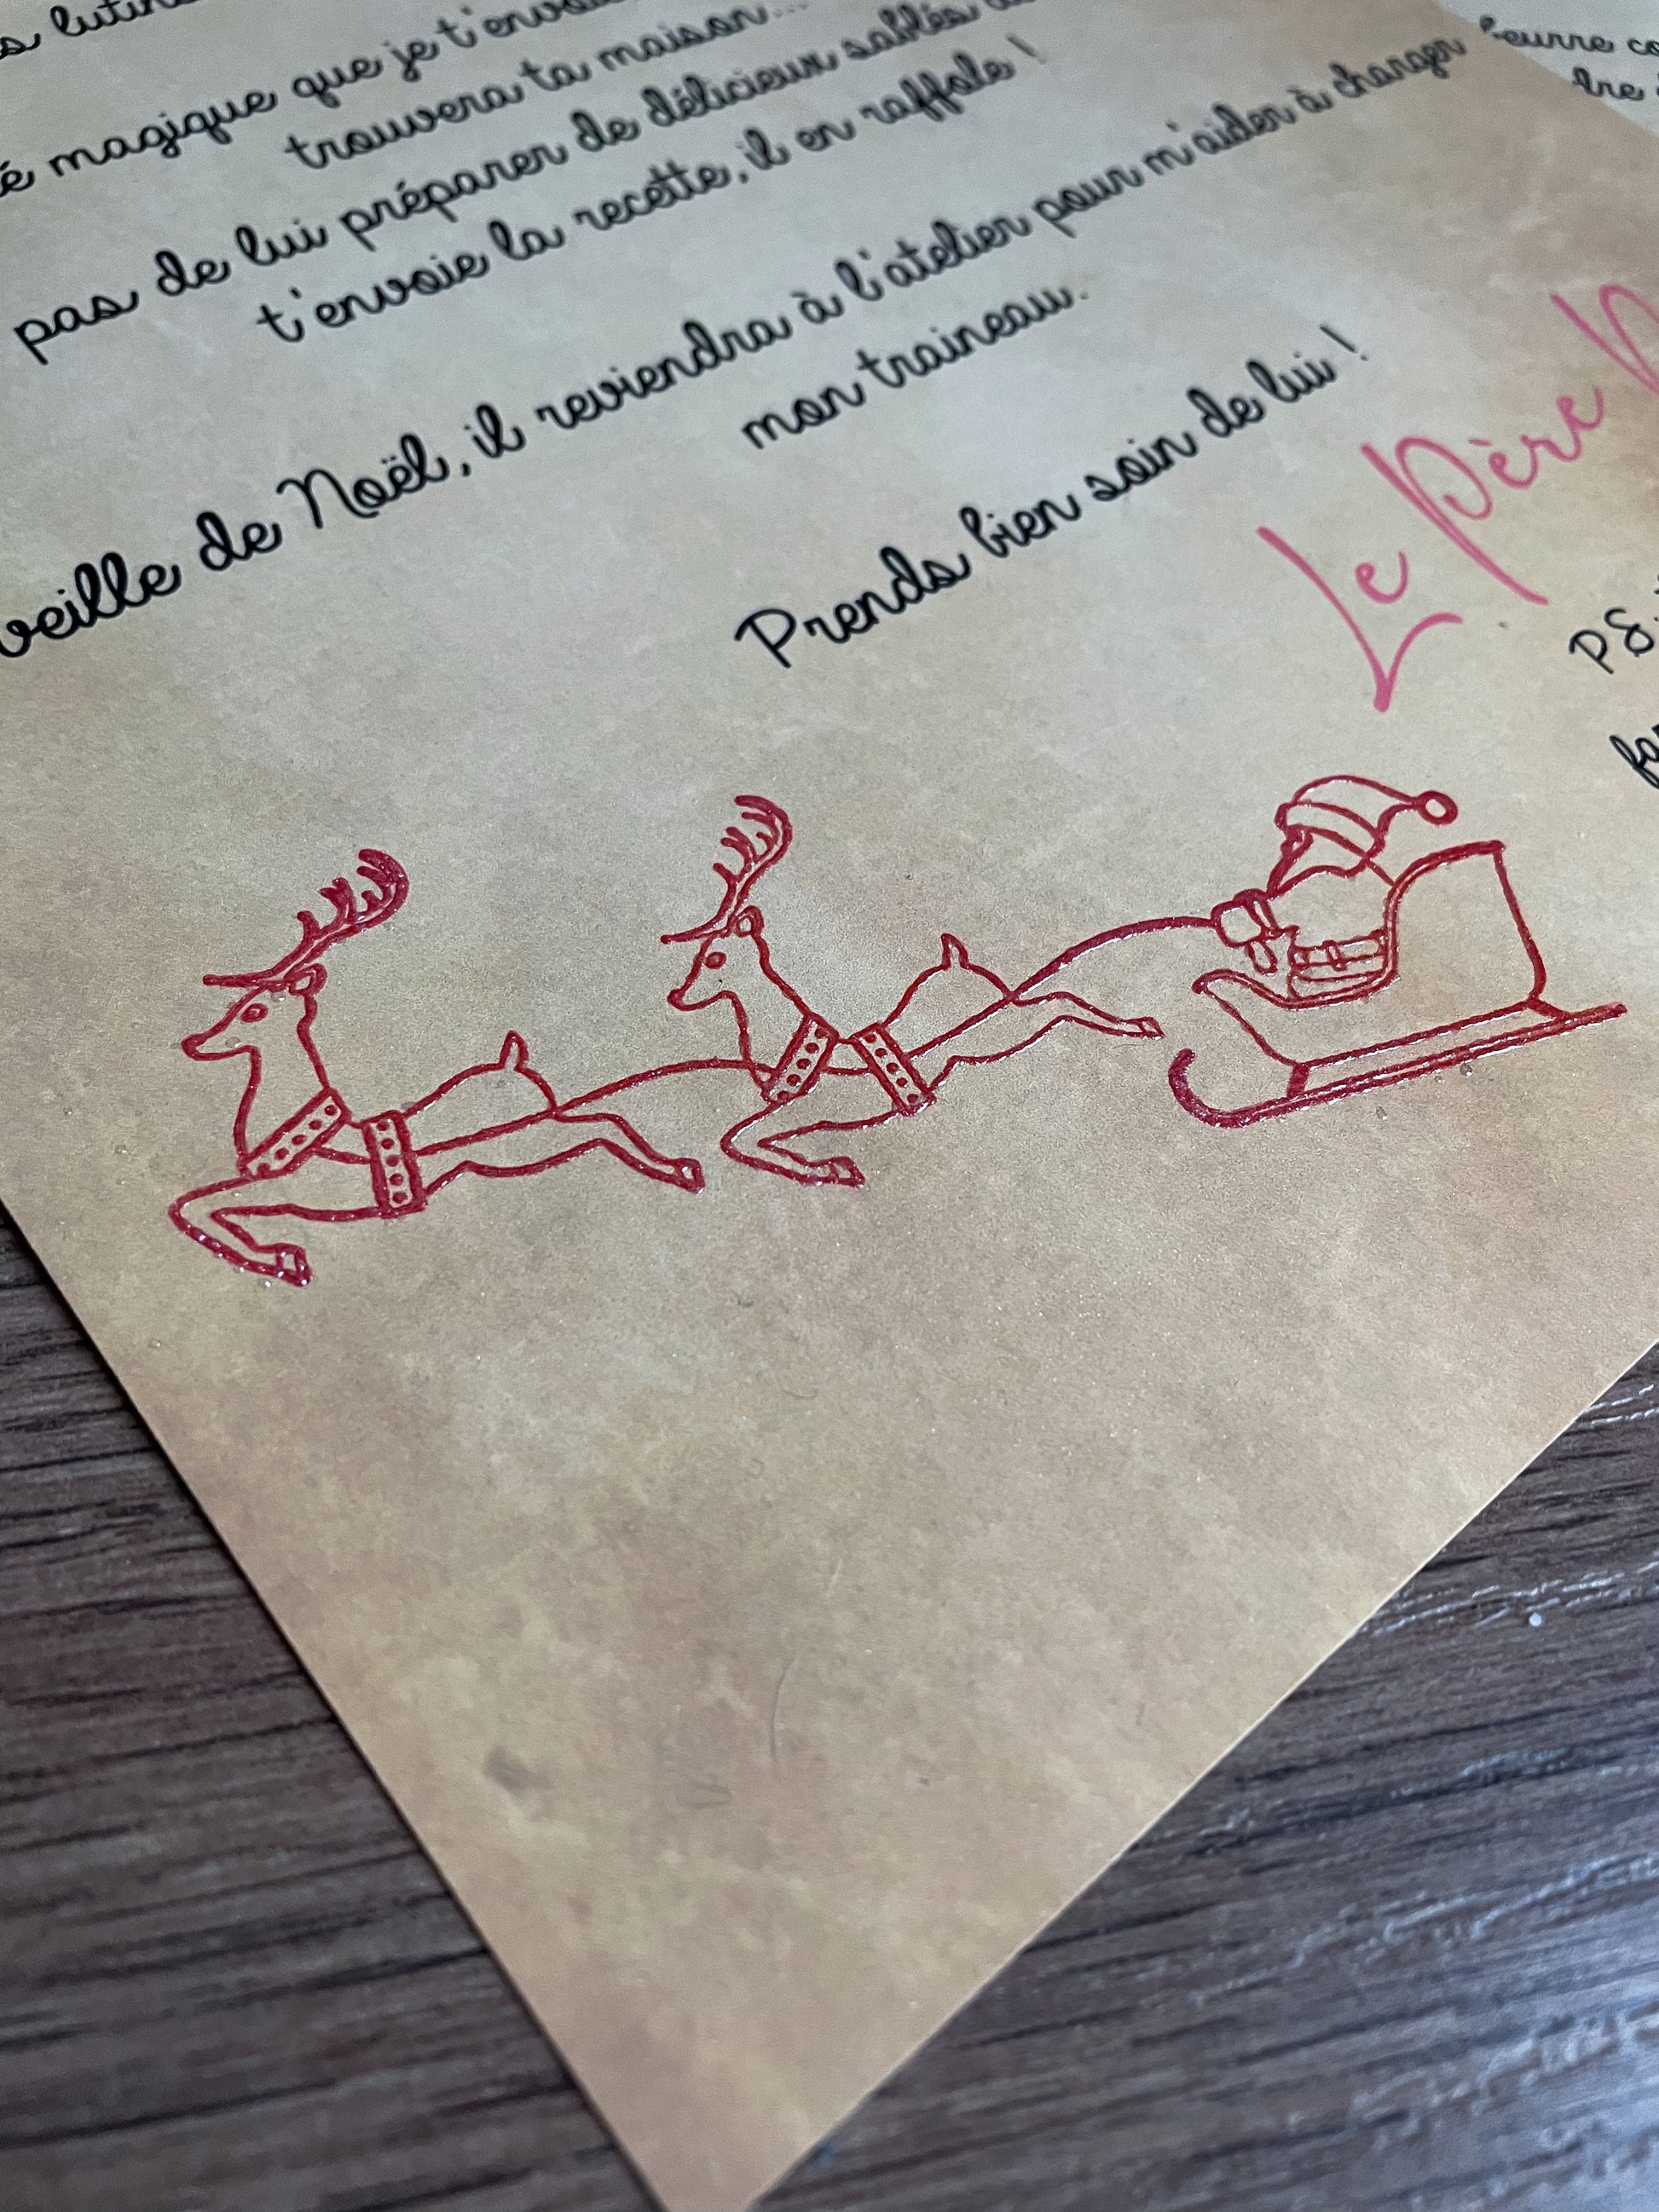 lutins
é magique que je t'envoie
trouvera ta maison...
pas de lui préparer de délicieux sablés
t'envoie la recette, il en raffole !
veille de Noël, il reviendra à l'atelier pour m'aider à charger
mon traineau.
Prends bien soin de lui !
Le Père
PS
beurre